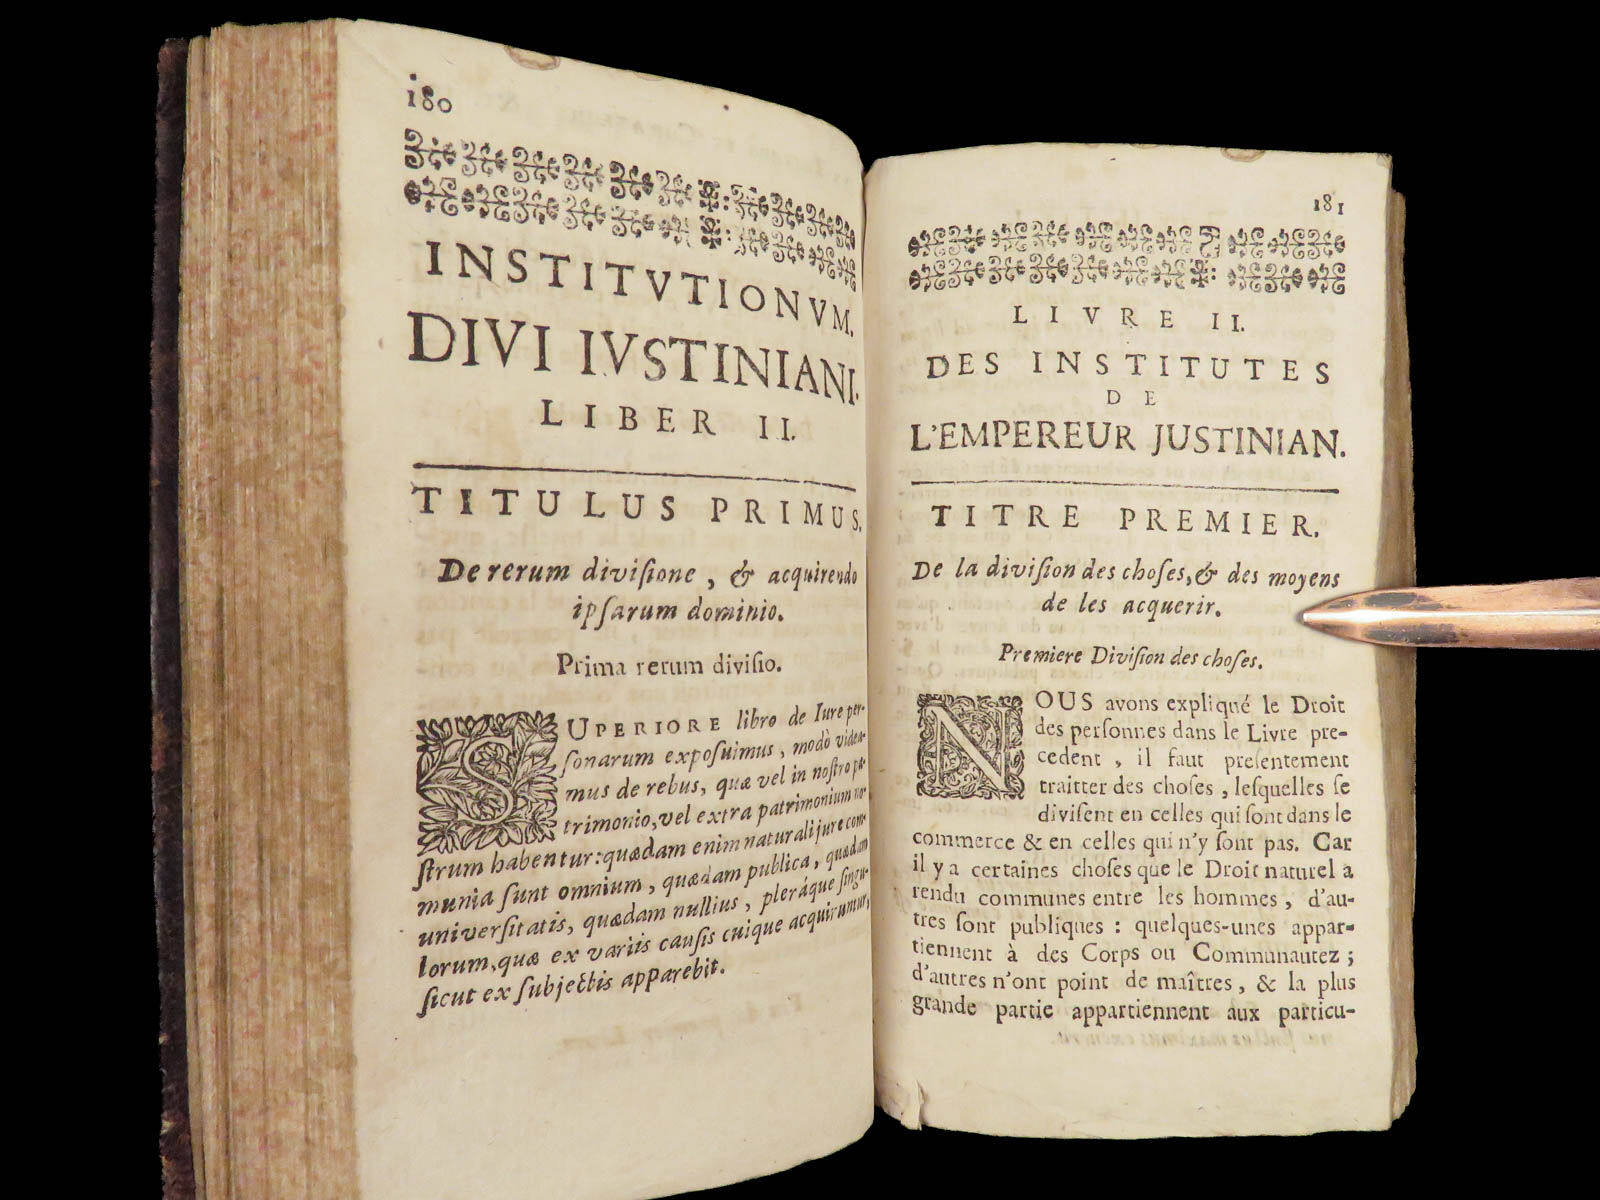 180
INSTITVTIONVM.
DIVI IVSTINIANI.
LIBER II.
TITULUS PRIMUS.
De rerum diviſione, & acquirendo
ipſarum dominio.
Prima rerum diviſio.
SUPERIORE libro de Iure per-
ſonarum expoſuimus, modò videa-
mus de rebus, quæ vel in noſtro pa-
trimonio, vel extra patrimonium no-
ſtrum habentur: quædam enim naturali jure com-
munia ſunt omnium, quædam publica, quædam
univerſitatis, quædam nullius, pleráque ſingu-
lorum, quæ ex variis cauſis cuique acquirumtur,
ſicut ex ſubjectis apparebit.
181
LIVRE II.
DES INSTITUTES
DE
L'EMPEREUR JUSTINIAN.
TITRE PREMIER.
De la diviſion des choſes, & des moyens
de les acquerir.
Premiere Diviſion des choſes.
NOUS avons expliqué le Droit
des perſonnes dans le Livre pre-
cedent, il faut preſentement
traitter des choſes, leſquelles ſe
diviſent en celles qui ſont dans le
commerce & en celles qui n'y ſont pas. Car
il y a certaines choſes que le Droit naturel a
rendu communes entre les hommes, d'au-
tres ſont publiques: quelques-unes appar-
tiennent à des Corps ou Communautez;
d'autres n'ont point de maîtres, & la plus
grande partie appartiennent aux particu-